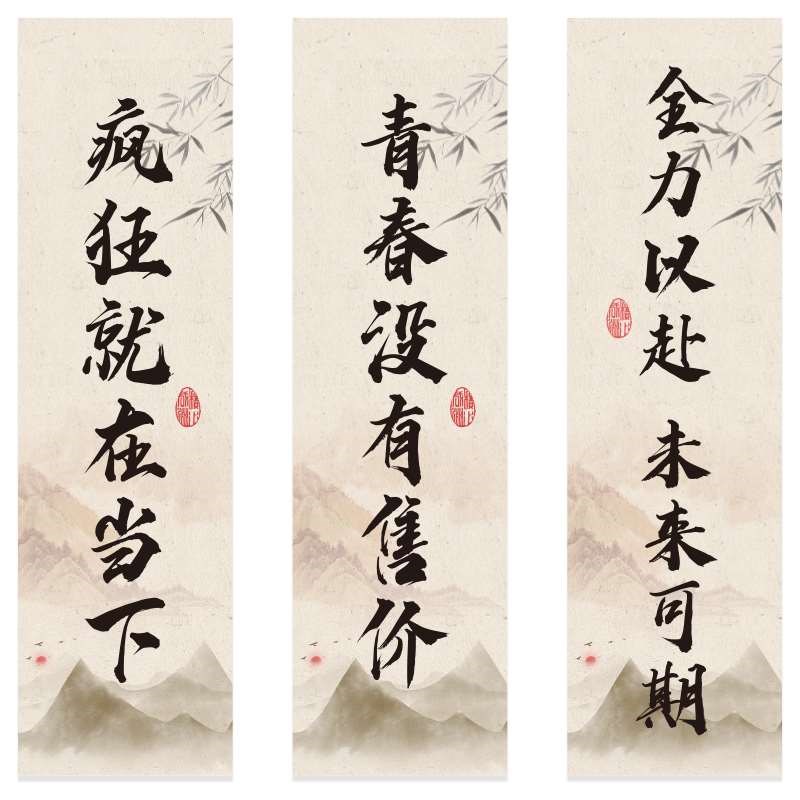 全力以赴 未来可期
青春没有售价
疯狂就在当下